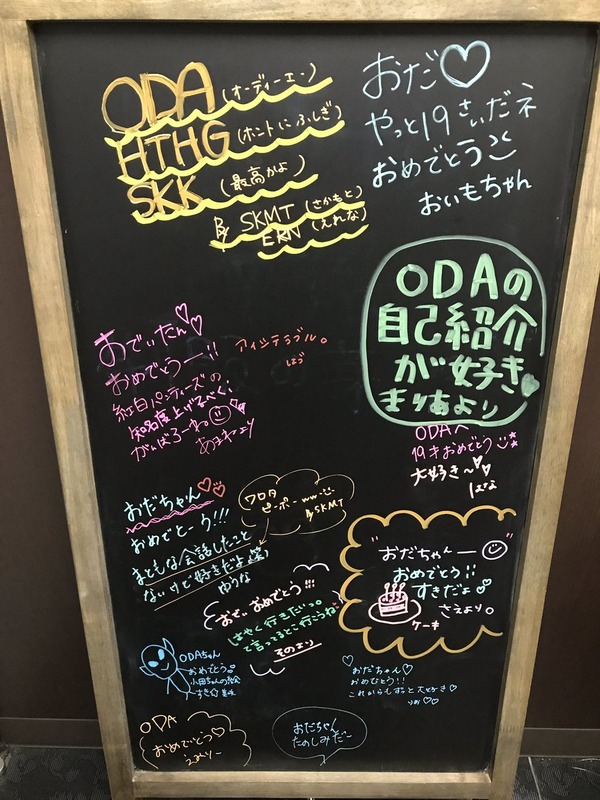 ODA (オーディーエー)
HTHG (ホントにふしぎ)
SKK (最高かよ)
By SKMT (さかもと)
ERN (えれな)
おだ♡
やっと19さいだネ
おめでとう
おいもちゃん
ODAの
自己紹介
が好き
まりあより
おでぃたん♡♡
おめでとうー!!
紅白パンティーズの
知名度上げるべく!
がんばろーね
アイシテラブル。
はづ
ODAへ
19才おめでとう
大好き〜♡
はな
おだちゃん♡♡
おめでとーう!!!
まともな会話したこと
ないけど好きだよ(笑)
ゆうな
クロタ
ピーポーww
By SKMT
おだちゃんー
おめでとう!!
すきだよ
さえより。
ケーキ
おぜ。おめでとう!!!
はやく行きだっつ。
て言ってるとこ行こうね
そのより
ODAちゃん
おめでとう。
小田ちゃんの絵
すき☆
おだちゃん♡
おめでとう!!
これからもずっと大好き♡
ODA
おめでとう♡
おだちゃん
たのしみだー